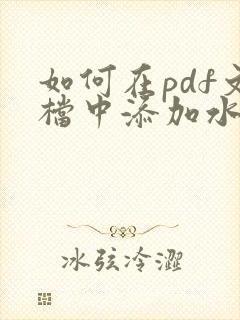 如何在pdf文
檔中添加水
冰弦冷澀